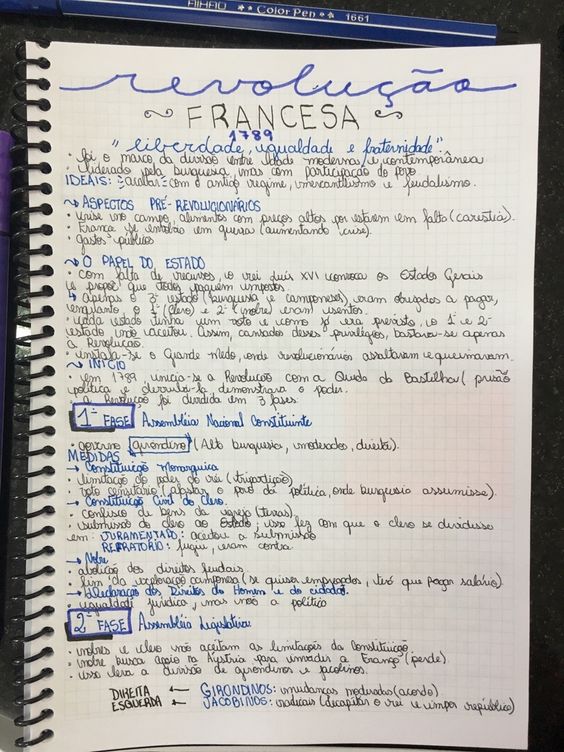 Color Pen 1661
revolução
FRANCESA
1789
"liberdade, igualdade e fraternidade"
• foi o marco da divisão entre Idade moderna e contemporânea
• liderado pela burguesia, mas com participação do povo.
IDEAIS: acabar com o antigo regime, mercantilismo e feudalismo.
→ ASPECTOS PRÉ-REVOLUCIONÁRIOS
• crise no campo, alimentos com preços altos por estarem em falta (carestia).
• França se envolvia em guerras (aumentando crise).
• gastos públicos
→ O PAPEL DO ESTADO
• com falta de recursos, o rei Luís XVI convoca os Estados Gerais
e propõe que todos paguem impostos.
↳ apenas o 3º estado (burguesia e camponeses) eram obrigados a pagar,
enquanto o 1º (clero) e 2º (nobre) eram isentos.
• cada estado tinha um voto e como já era previsto, o 1º e 2º
estado não aceitou. Assim, cansados desses privilégios, bastava-se apenas
a Revolução.
• instala-se o Grande medo, onde revolucionários assaltavam e queimavam.
→ INÍCIO
• em 1789, inicia-se a Revolução com a Queda da Bastilha (prisão
política e derrubá-la demonstrava o poder.
a Revolução foi dividida em 3 fases:
1ª FASE Assembléia Nacional Constituinte
• governo girondino (Alta burguesia, moderados, direita).
MEDIDAS
→ Constituição Monarquica
• limitação do poder do rei (tripartição)
• voto censitário (afastar o povo da política, onde burguesia assumisse).
→ Constituição Civil do Clero
• confisco de bens da igreja (terras)
• submissão do clero ao Estado; isso fez com que o clero se dividisse
em: JURAMENTADO: aceitou a submissão
REFRATÓRIO: fugiu, eram contra.
→ Nobre
• abolição dos direitos feudais.
• fim da exploração camponesa (se quiser empregados, terá que pagar salário).
→ Declaração dos Direitos do Homem e do cidadão
• igualdade jurídica, mas não a política
2ª FASE Assembléia Legislativa
• nobres e clero não aceitam as limitações da Constituição
• nobre busca apoio na Áustria para invadir a França (perde).
• isso leva a divisão de girondinos e jacobinos.
DIREITA ← GIRONDINOS: mudanças moderadas (acordo)
ESQUERDA ← JACOBINOS: radicais (decapitar o rei e impor república)